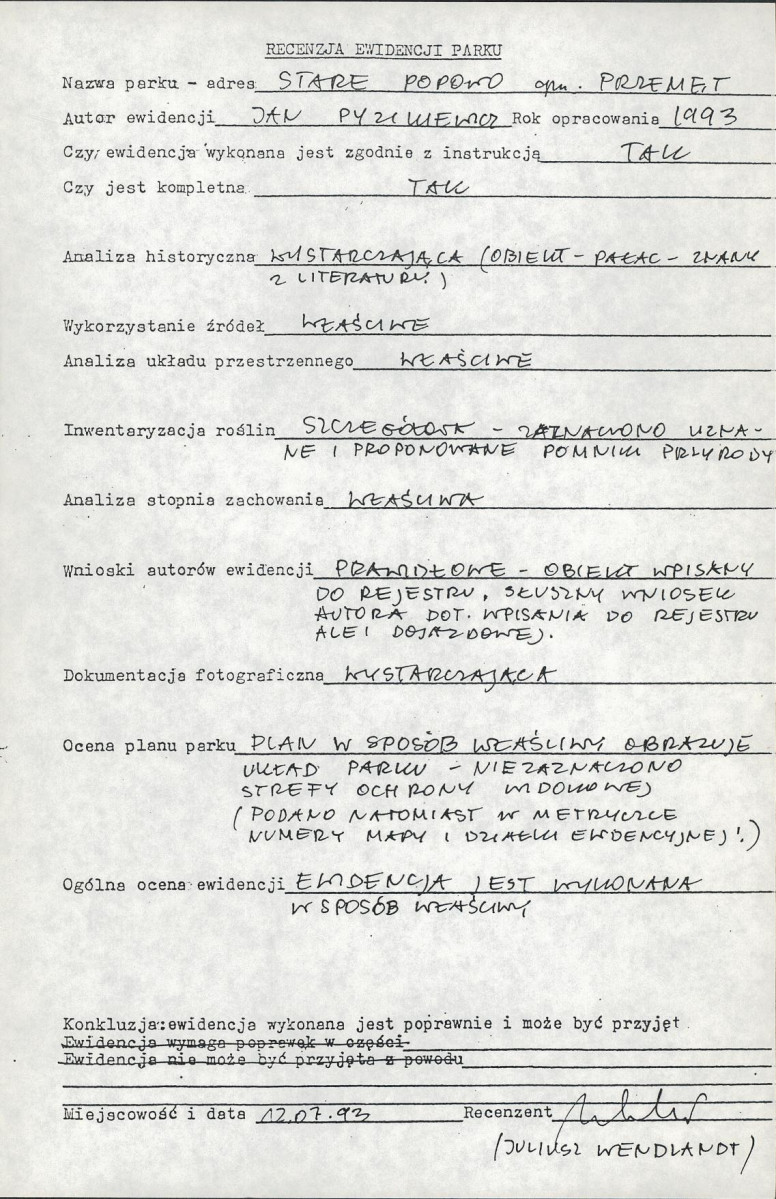 RECENZJA EWIDENCJI PARKU
Nazwa parku - adres STARE POPOWO gm. PRZEMĘT
Autor ewidencji JAN PYZIKIEWICZ Rok opracowania 1993
Czy ewidencja wykonana jest zgodnie z instrukcją TAK
Czy jest kompletna TAK
Analiza historyczna WYSTARCZAJĄCA (OBIEKT - PAŁAC - ZNANY
Z LITERATURY!)
Wykorzystanie źródeł WŁAŚCIWE
Analiza układu przestrzennego WŁAŚCIWE
Inwentaryzacja roślin SZCZEGÓŁOWA - ZAZNACZONO UZNA-
NE I PROPONOWANE POMNIKI PRZYRODY
Analiza stopnia zachowania WŁAŚCIWA
Wnioski autorów ewidencji PRAWIDŁOWE - OBIEKT WPISANY
DO REJESTRU, SŁUSZNY WNIOSEK
AUTORA DOT. WPISANIA DO REJESTRU
ALEI DOJAZDOWEJ.
Dokumentacja fotograficzna WYSTARCZAJĄCA
Ocena planu parku PLAN W SPOSÓB WŁAŚCIWY OBRAZUJE
UKŁAD PARKU - NIEZAZNACZONO
STREFY OCHRONY WIDOKOWEJ
(PODANO NATOMIAST W METRYCZCE
NUMERY MAPY I DZIAŁKI EWIDENCYJNEJ!)
Ogólna ocena ewidencji EWIDENCJA JEST WYKONANA
W SPOSÓB WŁAŚCIWY
Konkluzja:ewidencja wykonana jest poprawnie i może być przyjęt
Ewidencja wymaga poprawek w części
Ewidencja nie może być przyjęta z powodu
Miejscowość i data 12.07.93 Recenzent
(JULIUSZ WENDLANDT)